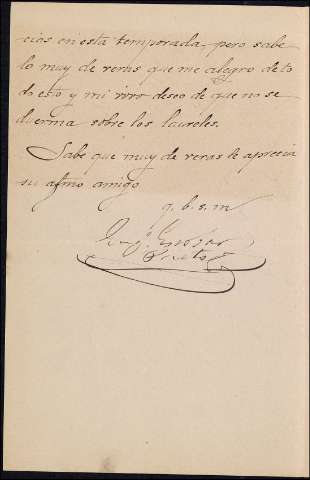 cias en esta temporada, pero sabe
lo muy de veras que me alegro de to
do esto y mi vivo deseo de que no se
duerma sobre los laureles.
Sabe que muy de veras le aprecia
su afmo amigo
q. b. s. m
Prieto